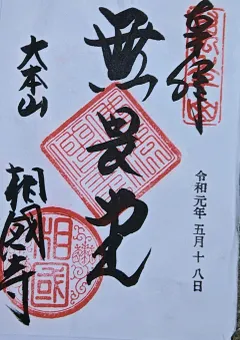 奉拝
無畏堂
令和元年五月十八日
大本山
相國寺
相國